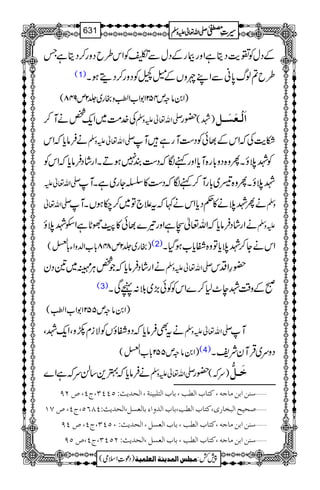 سیرتِ مصطفی صلی اللہ تعالیٰ علیہ وسلم 631
کے دل کو تقویت دیتا ہے اور بیمار کے دل سے تکلیف کو اس طرح دور کر دیتا ہے جس
طرح تم لوگ پانی سے اپنے چہروں کے میل کچیل کو دور کر دیتے ہو۔ (1)
(ابن ماجہ ص ۲۵۴ باب الطب و بخاری جلد ۲ ص ۸۴۹)
اَلْعَسَل (شہد) حضور صلی اللہ تعالیٰ علیہ وسلم کی خدمت میں ایک شخص نے آ کر
شکایت کی کہ اس کے بھائی کو دست آ رہے ہیں آپ صلی اللہ تعالیٰ علیہ وسلم نے فرمایا کہ اس
کو شہد پلاؤ۔ پھر وہ دوبارہ آیا اور کہنے لگا کہ دست بند نہیں ہوتے۔ ارشاد فرمایا کہ اس کو
شہد پلاؤ۔ پھر وہ تیسری بار آ کر کہنے لگا کہ دست کا سلسلہ جاری ہے۔ آپ صلی اللہ تعالیٰ علیہ
وسلم نے پھر شہد پلانے کا حکم دیا اس نے کہا کہ میں تو یہ علاج کر چکا ہوں۔ آپ صلی اللہ تعالیٰ
علیہ وسلم نے ارشاد فرمایا کہ اللہ تعالیٰ سچا ہے اور تیرے بھائی کا پیٹ جھوٹا ہے اسکو شہد پلاؤ
اس نے جا کر شہد پلایا تو وہ شفایاب ہو گیا۔ (2) (بخاری جلد ۲ ص ۸۴۸ باب الدواء بالعسل)
حضور اقدس صلی اللہ تعالیٰ علیہ وسلم نے ارشاد فرمایا کہ جو شخص ہر مہینہ میں تین دن
صبح کے وقت شہد چاٹ لیا کرے اس کو کوئی بڑی بلا نہ پہنچے گی۔ (3)
(ابن ماجہ ص ۲۵۵ باب الطب)
آپ صلی اللہ تعالیٰ علیہ وسلم نے یہ بھی فرمایا کہ دو شفاؤں کو لازم پکڑو، ایک شہد،
دوسری قرآن شریف۔ (4) (ابن ماجہ ص ۲۵۵ باب العسل)
اَلْخَلّ (سرکہ) حضور صلی اللہ تعالیٰ علیہ وسلم نے فرمایا کہ بہترین سالن سرکہ ہے اے
......سنن ابن ماجه ، کتاب الطب ، باب التلبینة ، الحدیث: ۳۴۴۵،ج۴، ص ۹۲
......صحیح البخاری،کتاب الطب،باب الدواء بالعسل،الحدیث:۵۶۸۴،ج۴، ص ۱۷
......سنن ابن ماجه ، کتاب الطب ، باب العسل ، الحدیث: ۳۴۵۰،ج۴، ص ۹۴
......سنن ابن ماجه ، کتاب الطب ، باب العسل ،الحدیث: ۳۴۵۲،ج۴، ص ۹۵
پیش کش: مجلس المدینة العلمیة (دعوتِ اسلامی)